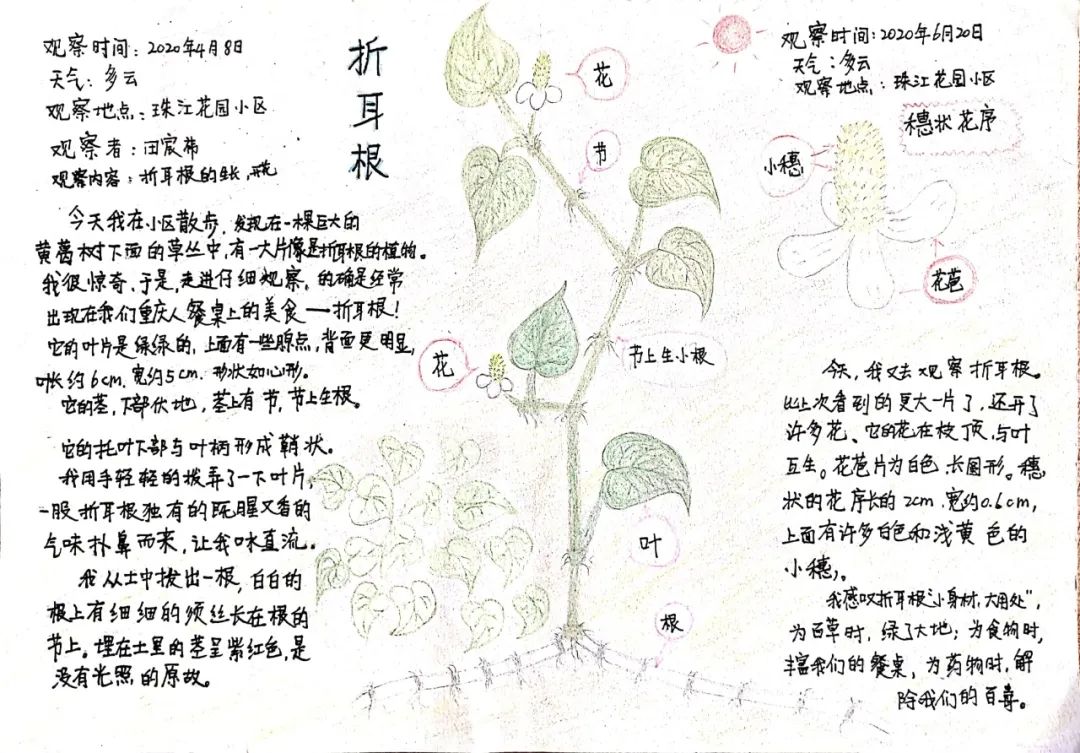 观察时间：2020年4月8日
天气：多云
观察地点：珠江花园小区
观察者：田宸
观察内容：折耳根的生长，开花
折耳根
今天我在小区散步，发现在一棵巨大的
黄葛树下面的草丛中，有一大片像是折耳根的植物。
我很惊奇，于是，走进仔细观察，的确是经常
出现在我们重庆人餐桌上的美食——折耳根！
它的叶片是绿绿的，上面有一些腺点，背面更明显，
叶长约6cm，宽约5cm，形状如心形。
它的茎，下部伏地，茎上有节，节上生根。
它的托叶下部与叶柄形成鞘状。
我用手轻轻的拨弄了一下叶片，
一股折耳根独有的既腥又香的
气味扑鼻而来，让我口味直流。
我从土中拔出一根，白白的
根上有细细的须丝长在根的
节上。埋在土里的茎呈紫红色，是
没有光照的原故。
花
节
花
节上生小根
叶
根
观察时间：2020年6月20日
天气：多云
观察地点：珠江花园小区
穗状花序
小穗
花苞
今天，我又去观察折耳根。
比上次看到的更大一片了，还开了
许多花、它的花在枝顶，与叶
互生。花苞片为白色长圆形。穗
状的花序长的2cm，宽约0.6cm，
上面有许多白色和浅黄色的
小穗。
我感叹折耳根“小身材，大用处”，
为百草时，绿了大地；为食物时，
丰富我们的餐桌，为药物时，解
除我们的百毒。